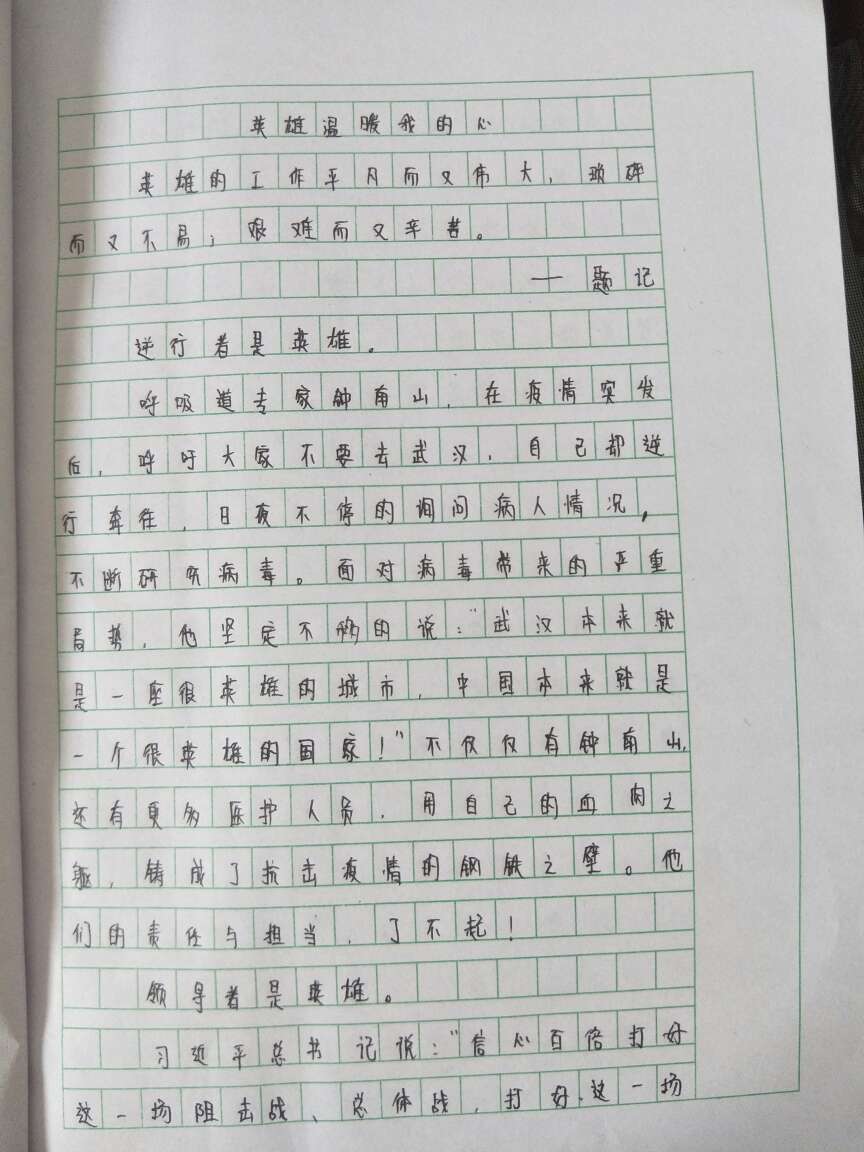 英雄温暖我的心
英雄的工作平凡而又伟大，琐碎
而又不易；艰难而又辛苦。
——题记
逆行者是英雄。
呼吸道专家钟南山，在疫情突发
后，呼吁大家不要去武汉，自己却逆
行奔往，日夜不停的询问病人情况，
不断研究病毒。面对病毒带来的严重
局势，他坚定不移的说：“武汉本来就
是一座很英雄的城市，中国本来就是
一个很英雄的国家！”不仅仅有钟南山，
还有更多医护人员，用自己的血肉之
躯，铸成了抗击疫情的钢铁之壁。他
们的责任与担当，了不起！
领导者是英雄。
习近平总书记说：“信心百倍打好
这一场阻击战、总体战，打好这一场